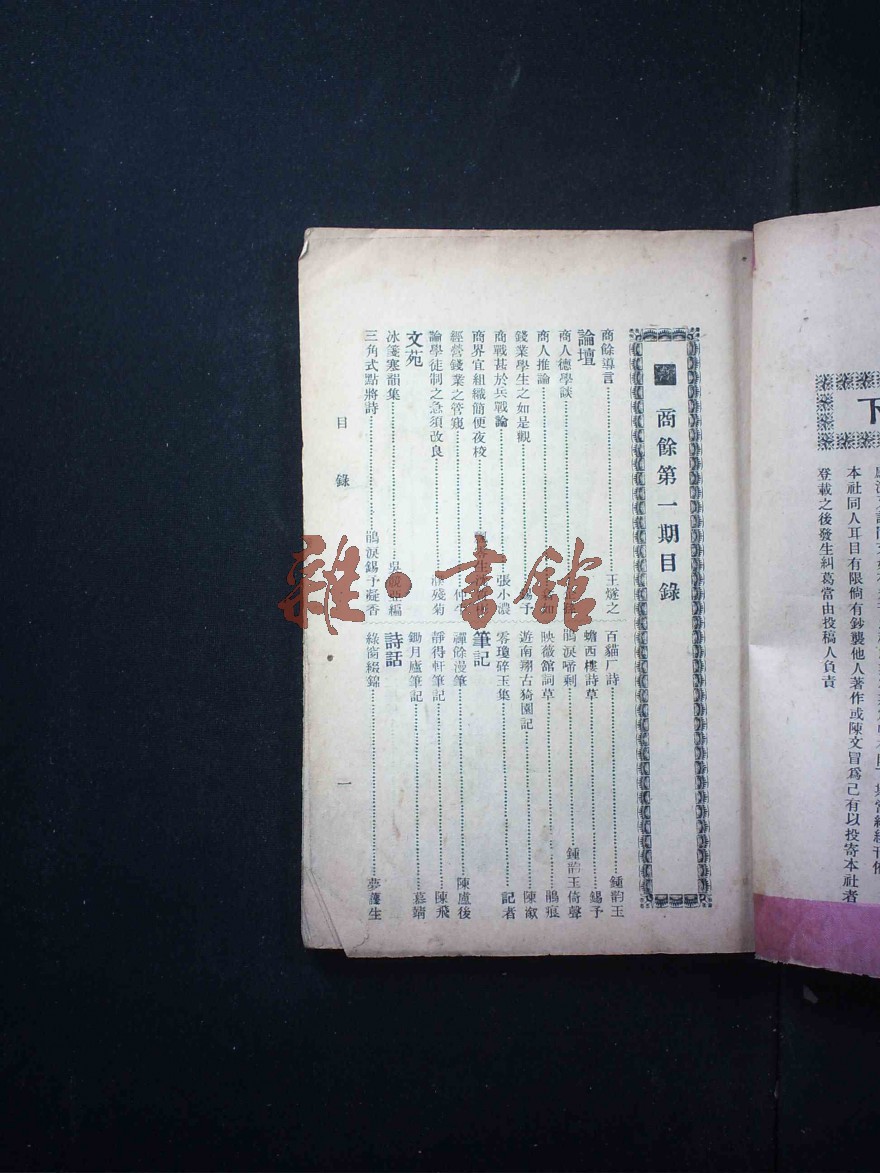 下
本社同人耳目有限倘有鈔襲他人著作或陳文冒爲己有以投寄本社者
登載之後發生糾葛當由投稿人負責
商餘第一期目錄
商餘導言 王燧之
論壇
商人德學談
商人推論
錢業學生之如是觀 錫予
商戰甚於兵戰論 張小濃
商界宜組織簡便夜校
經營錢業之管窺 仲
論學徒制之急須改良 殘菊
文苑
冰箋寒韻集
三角式點將詩 鵑淚錫予凝香
百貓厂詩 鍾韵玉
蟾西樓詩草 錫予
鵑淚啼剩 鍾韵玉倚聲
映薇館詞草 鵑痕
遊南翔古猗園記 陳溆
零瓊碎玉集 記者
筆記
禪餘漫筆 陳盧後
靜得軒筆記 陳飛
鋤月廬筆記 慕靖
詩話
綠窗綴錦 夢蘧生
目錄
一
雜·書館